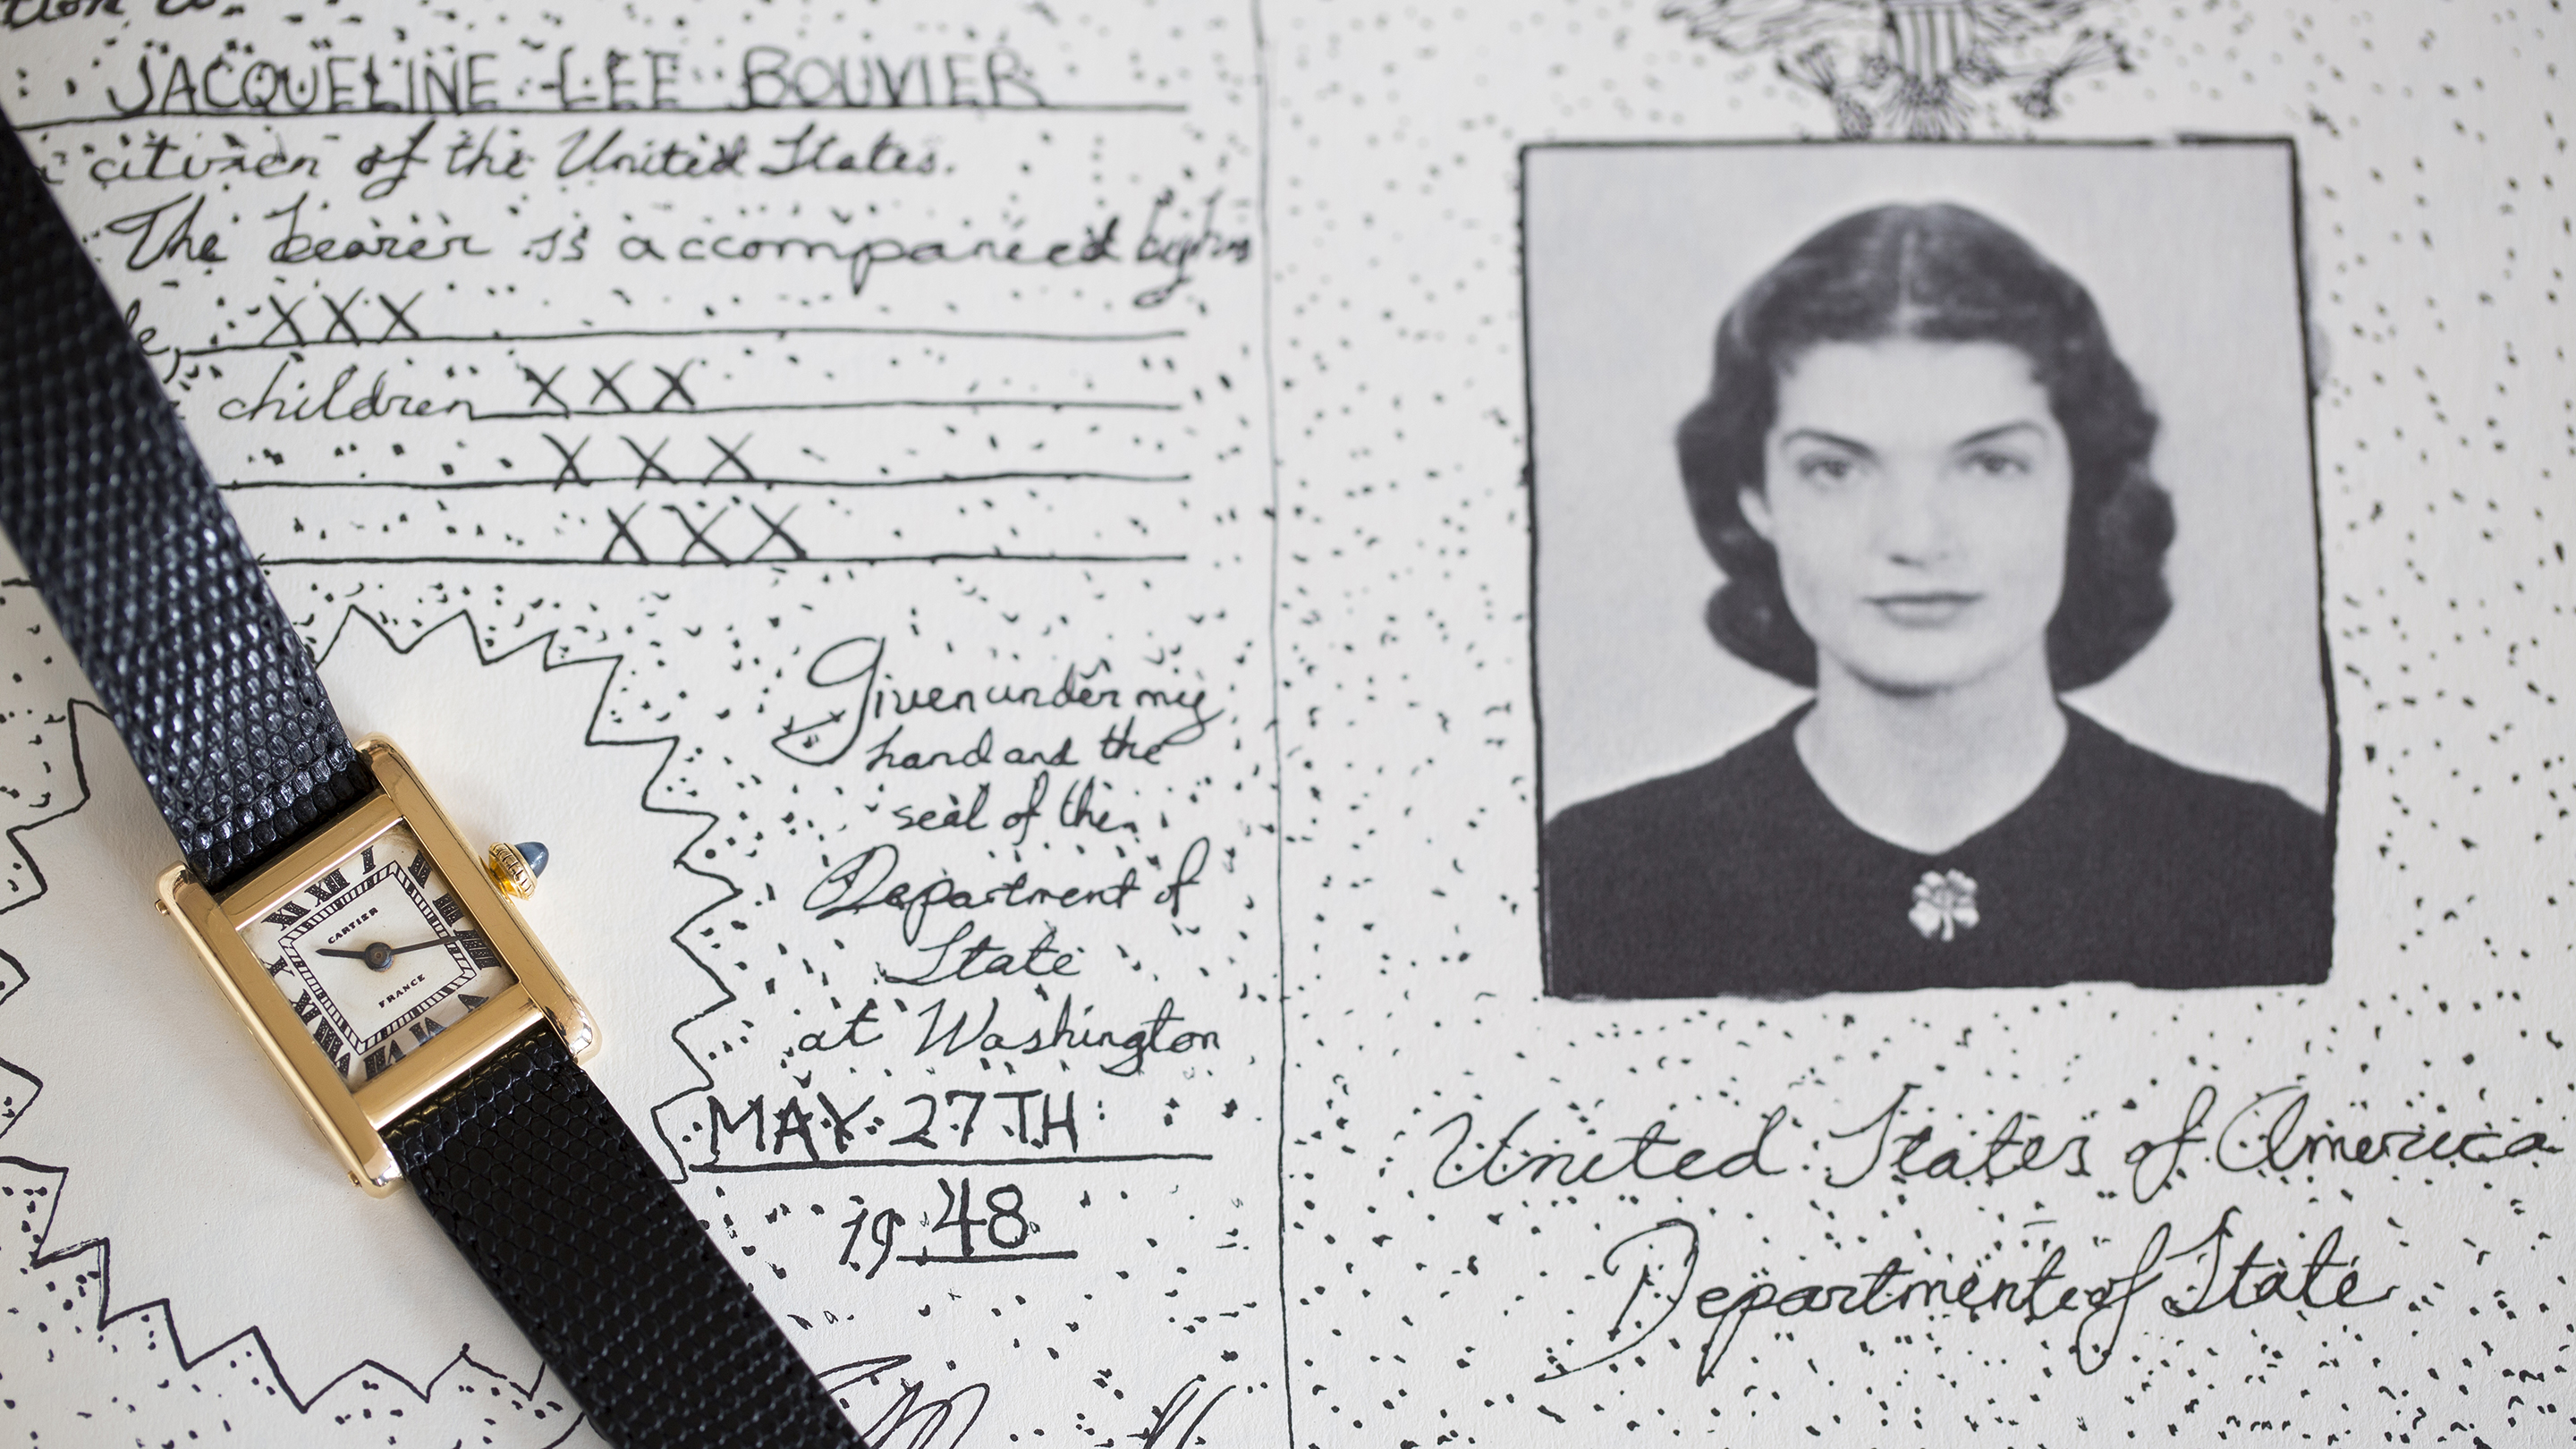 JACQUELINE LEE BOUVIER
a citizen of the United States.
The bearer is accompanied by his
XXX
children XXX
XXX
XXX
Given under my
hand and the
seal of the
Department of
State
at Washington
MAY 27TH
19 48
United States of America
Department of State
XII I
CARTIER
FRANCE